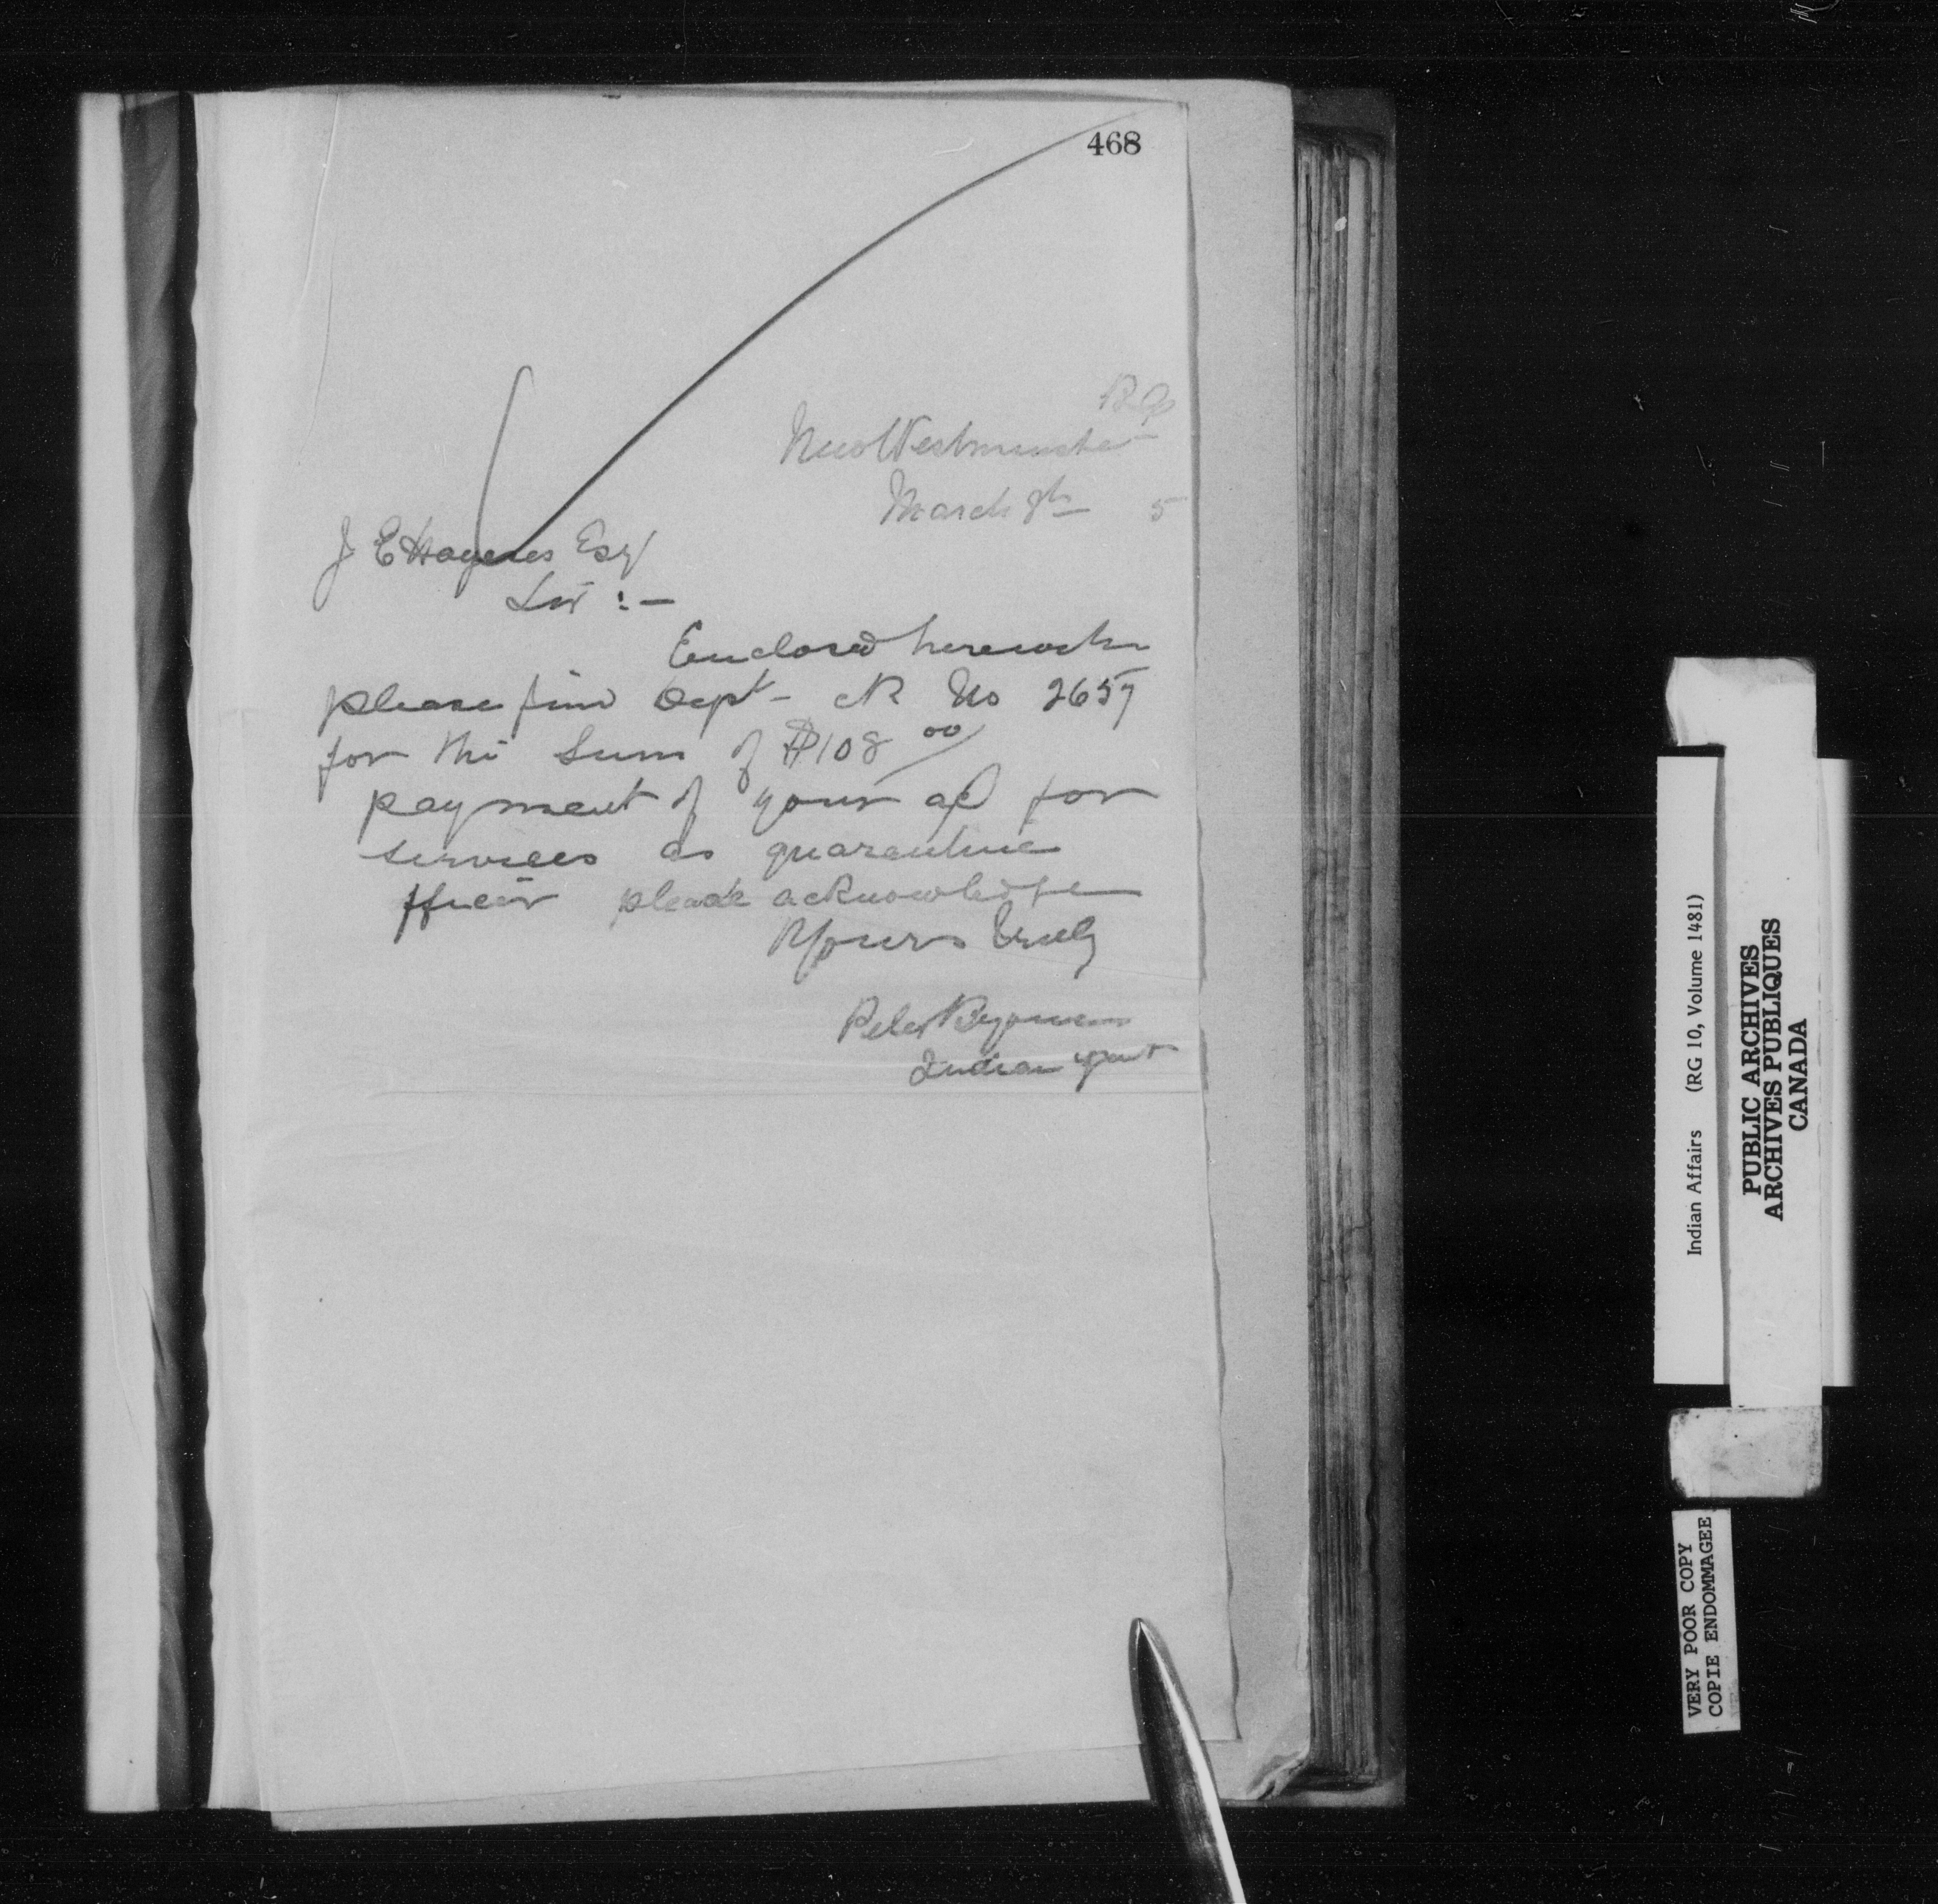 468
B.C.
New Westminster
March 8th 5
J E Haynes Esq
Sir :-
Enclosed herewith
please find Dept - ck No 2657
for the Sum of $108 00/
payment of your a/c for
services as quarantine
fficer please acknowledge
Yours truly
Peter Byrne
Indian Agent
Indian Affairs (RG 10, Volume 1481)
PUBLIC ARCHIVES
ARCHIVES PUBLIQUES
CANADA
VERY POOR COPY
COPIE ENDOMMAGEE